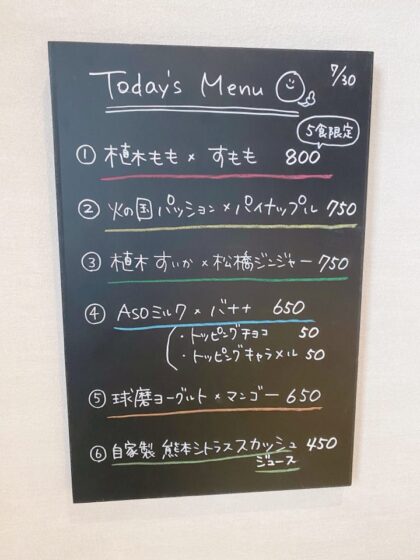 7/30
Today's Menu
5食限定
① 植木もも × すもも 800
② 火の国 パッション × パイナップル 750
③ 植木 すいか × 松橋ジンジャー 750
④ ASOミルク × バナナ 650
・トッピングチョコ 50
・トッピングキャラメル 50
⑤ 球磨ヨーグルト × マンゴー 650
⑥ 自家製 熊本シトラス スカッシュ 450
ジュース